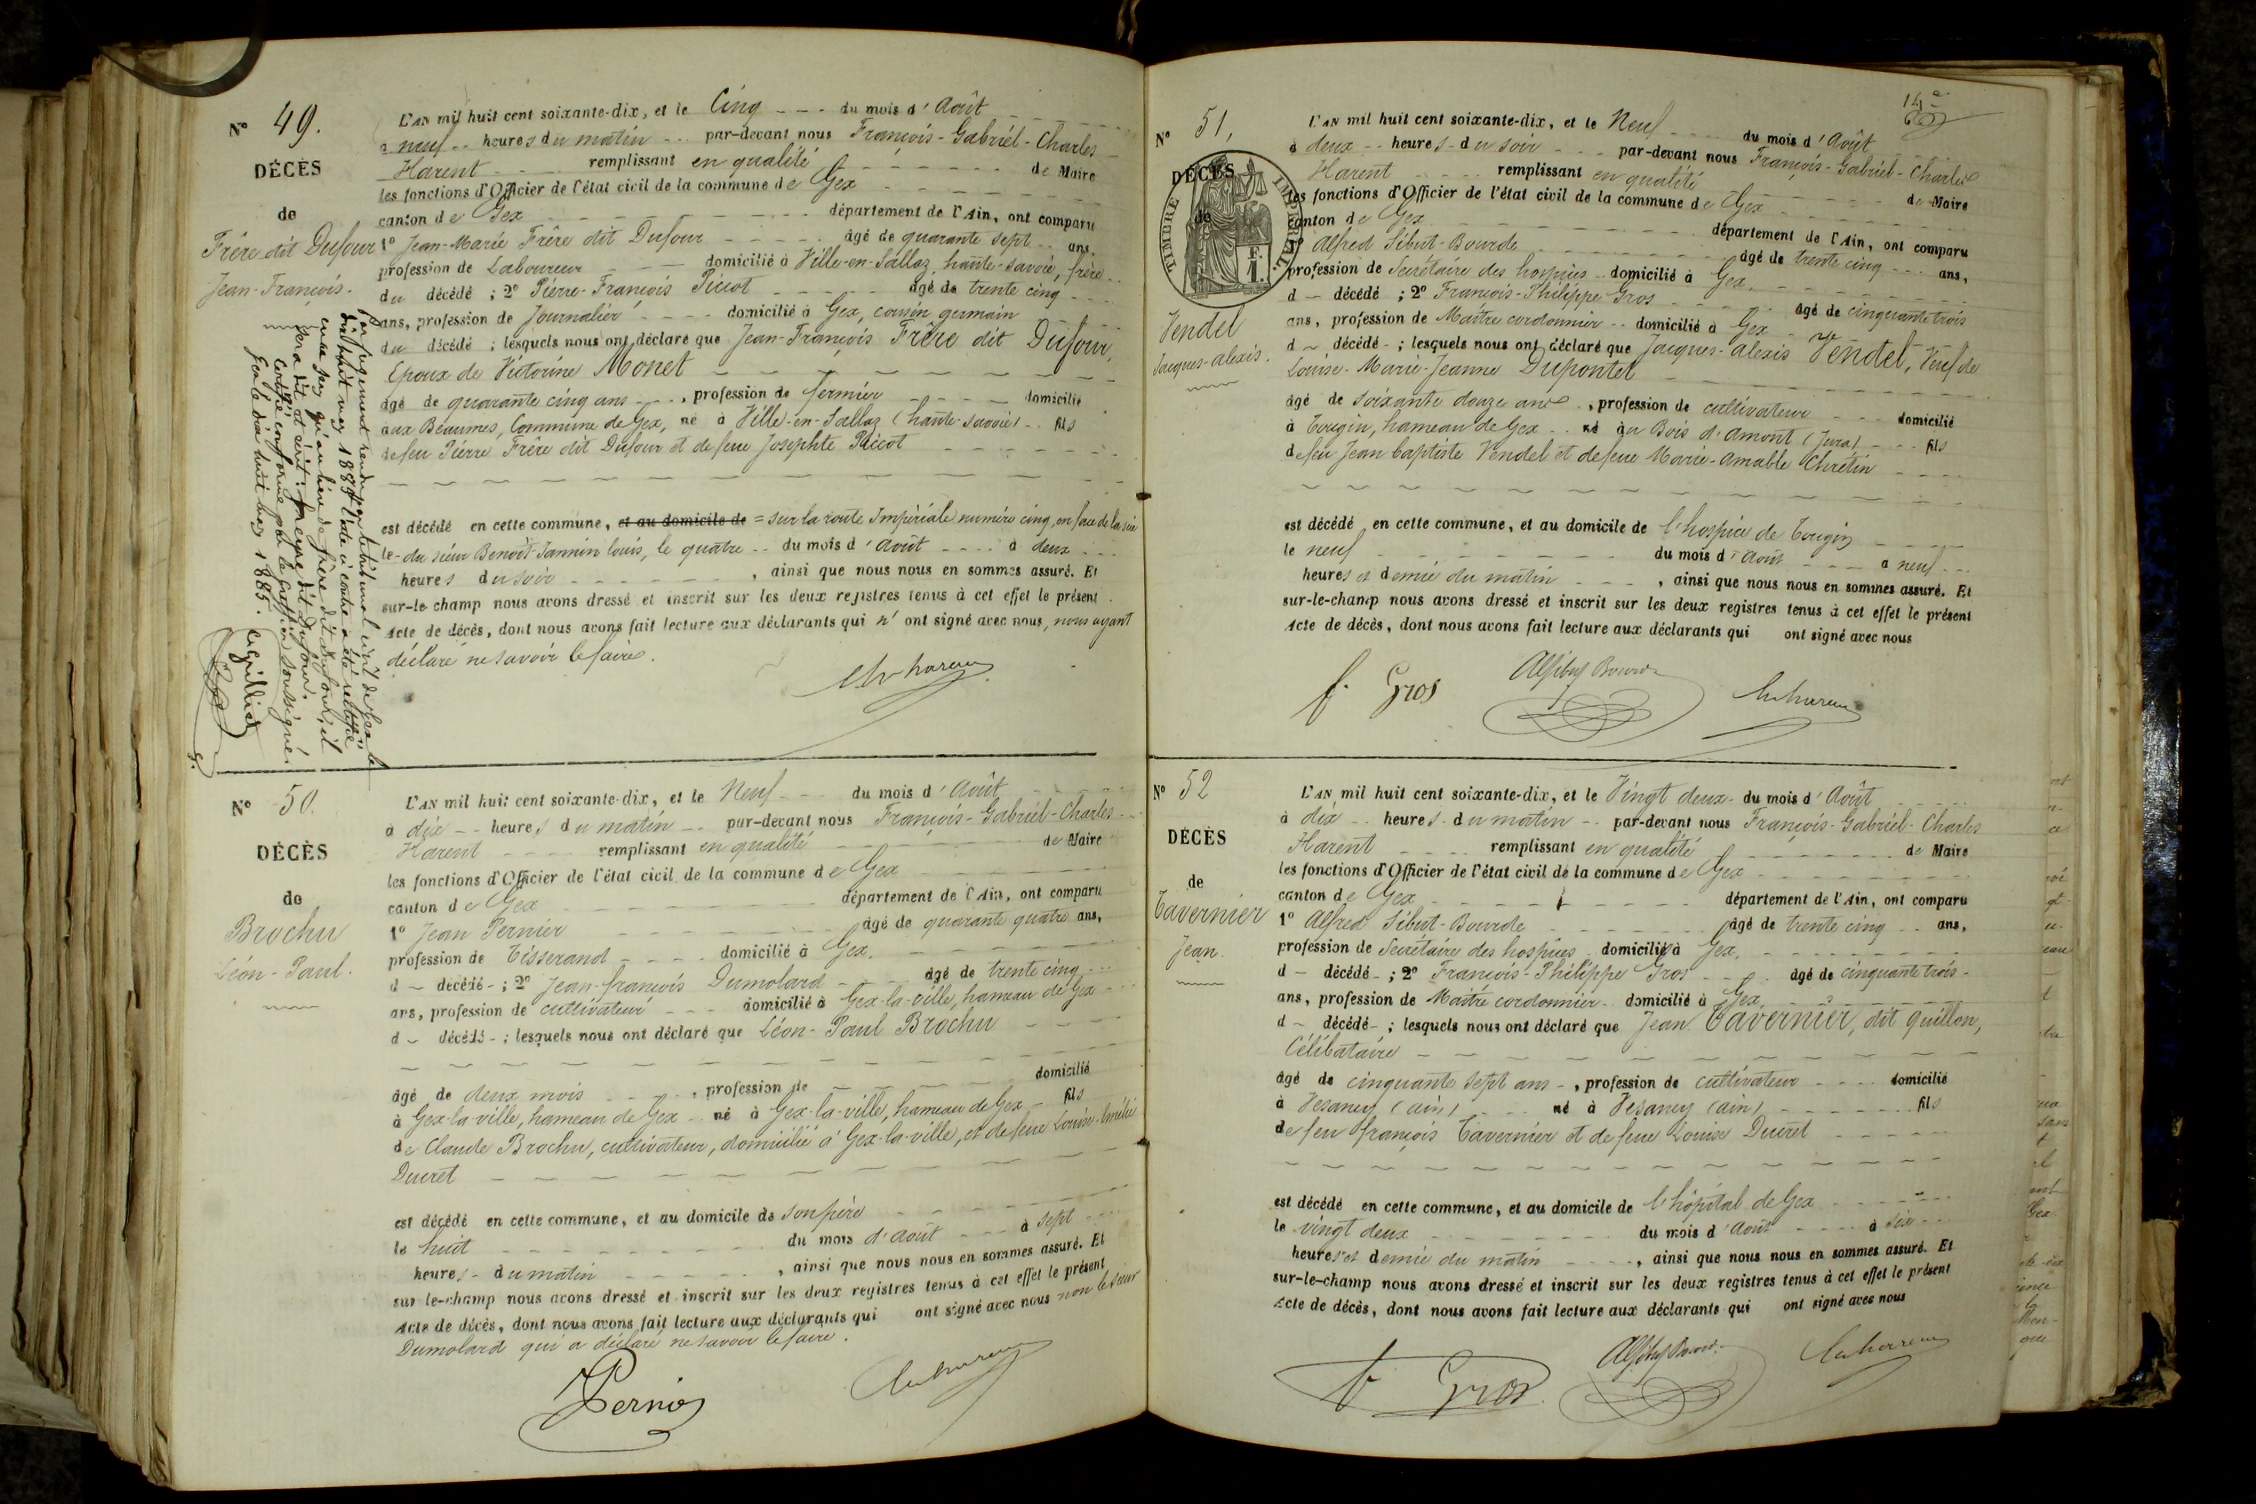 N° 49.
DÉCÈS
de
Frère dit Dufour
Jean-François.
L'AN mil huit cent soixante-dix, et le Cinq du mois d'Août
à neuf heures du matin par-devant nous François-Gabriel-Charles
Harent remplissant en qualité de Maire
les fonctions d'Officier de l'état civil de la commune de Gex
canton de Gex département de l'Ain, ont comparu
1° Jean-Marie Frère dit Dufour âgé de quarante sept ans,
profession de Laboureur domicilié à Ville-en-Sallaz, haute-savoie, frère
du décédé ; 2° Pierre-François Piccot âgé de trente cinq
ans, profession de Journalier domicilié à Gex, cousin germain
du décédé ; lesquels nous ont déclaré que Jean-François Frère dit Dufour,
Epoux de Victorine Monet
âgé de quarante cinq ans, profession de fermier domicilié
aux Béaumes, Commune de Gex, né à Ville-en-Sallaz (haute-savoie) fils
de feu Pierre Frère dit Dufour et de feue Josephte Piccot
est décédé en cette commune, et au domicile de = sur la route Impériale numéro cinq, en face de la
le du sieur Benoit-Jannin louis, le quatre du mois d'Août à deux
heures du soir, ainsi que nous nous en sommes assuré. Et
sur-le-champ nous avons dressé et inscrit sur les deux registres tenus à cet effet le présent
Acte de décès, dont nous avons fait lecture aux déclarants qui n'ont signé avec nous, nous ayant
déclaré ne savoir le faire.
par jugement rendu par le tribunal civil de Gex le
dix huit mars 1885 l'acte ci contre a été rectifié
en ce sens qu'au lieu de frère dit dufour, il
sera dit et écrit: dit dufour.
Certifié conforme par le greffier soussigné.
Gex le dix huit mars 1885.
N° 50.
DÉCÈS
de
Brochu
Léon-Paul.
L'AN mil huit cent soixante-dix, et le Neuf du mois d'Août
à dix heures du matin par-devant nous François-Gabriel-Charles
Harent remplissant en qualité de Maire
les fonctions d'Officier de l'état civil de la commune de Gex
canton de Gex département de l'Ain, ont comparu
1° Jean Pernier âgé de quarante quatre ans,
profession de Tisserand domicilié à Gex.
d décédé ; 2° Jean-françois Dumolard âgé de trente cinq
ans, profession de cultivateur domicilié à Gex-la-ville, hameau de Gex
d décédé ; lesquels nous ont déclaré que Léon-Paul Brochu
âgé de deux mois, profession de domicilié
à Gex-la-ville, hameau de Gex né à Gex-la-ville, hameau de Gex fils
de Claude Brochu, cultivateur, domicilié à Gex-la-ville, et de feue Louise-Amélie
Ducret
est décédé en cette commune, et au domicile de son père
le huit du mois d'Août à sept
heures du matin, ainsi que nous nous en sommes assuré. Et
sur le-champ nous avons dressé et inscrit sur les deux registres tenus à cet effet le présent
Acte de décès, dont nous avons fait lecture aux déclarants qui ont signé avec nous non le sieur
Dumolard qui a déclaré ne savoir le faire.
Pernier
14e
N° 51,
DÉCÈS
de
TIMBRE IMPERIAL.
1 F.
Vendel
Jacques-alexis.
L'AN mil huit cent soixante-dix, et le Neuf du mois d'Août
à deux heures du soir par-devant nous François-Gabriel-Charles
Harent remplissant en qualité de Maire
les fonctions d'Officier de l'état civil de la commune de Gex
canton de Gex département de l'Ain, ont comparu
1° Alfred Sibut-Bourde âgé de trente cinq ans,
profession de Secrétaire des hospices domicilié à Gex.
d décédé ; 2° François-Philippe Gros âgé de cinquante trois
ans, profession de Maître cordonnier domicilié à Gex
d décédé ; lesquels nous ont déclaré que Jacques-alexis Vendel, Veuf de
Louise-Marie-Jeanne Dupontet
âgé de soixante douze ans, profession de cultivateur domicilié
à Tougin, hameau de Gex né au Bois d'amont (Jura) fils
de feu Jean baptiste Vendel et de feue Marie-amable Chrétin
est décédé en cette commune, et au domicile de l'hospice de Tougin
le neuf du mois d'Août à neuf
heures et demie du matin, ainsi que nous nous en sommes assuré. Et
sur-le-champ nous avons dressé et inscrit sur les deux registres tenus à cet effet le présent
Acte de décès, dont nous avons fait lecture aux déclarants qui ont signé avec nous
f. Gros
N° 52
DÉCÈS
de
Tavernier
Jean.
L'AN mil huit cent soixante-dix, et le Vingt deux du mois d'Août
à dix heures du matin par-devant nous François-Gabriel-Charles
Harent remplissant en qualité de Maire
les fonctions d'Officier de l'état civil de la commune de Gex
canton de Gex département de l'Ain, ont comparu
1° Alfred Sibut-Bourde âgé de trente cinq ans,
profession de Secrétaire des hospices domicilié à Gex.
d décédé ; 2° François-Philippe Gros âgé de cinquante trois
ans, profession de Maître cordonnier domicilié à Gex
d décédé ; lesquels nous ont déclaré que Jean Tavernier, dit quillon,
Célibataire
âgé de cinquante sept ans, profession de cultivateur domicilié
à Vesancy (ain) né à Vesancy (ain) fils
de feu françois Tavernier et de feue Louise Ducret
est décédé en cette commune, et au domicile de l'hôpital de Gex
le vingt deux du mois d'Août à six
heures et demie du matin, ainsi que nous nous en sommes assuré. Et
sur-le-champ nous avons dressé et inscrit sur les deux registres tenus à cet effet le présent
Acte de décès, dont nous avons fait lecture aux déclarants qui ont signé avec nous
f Gros